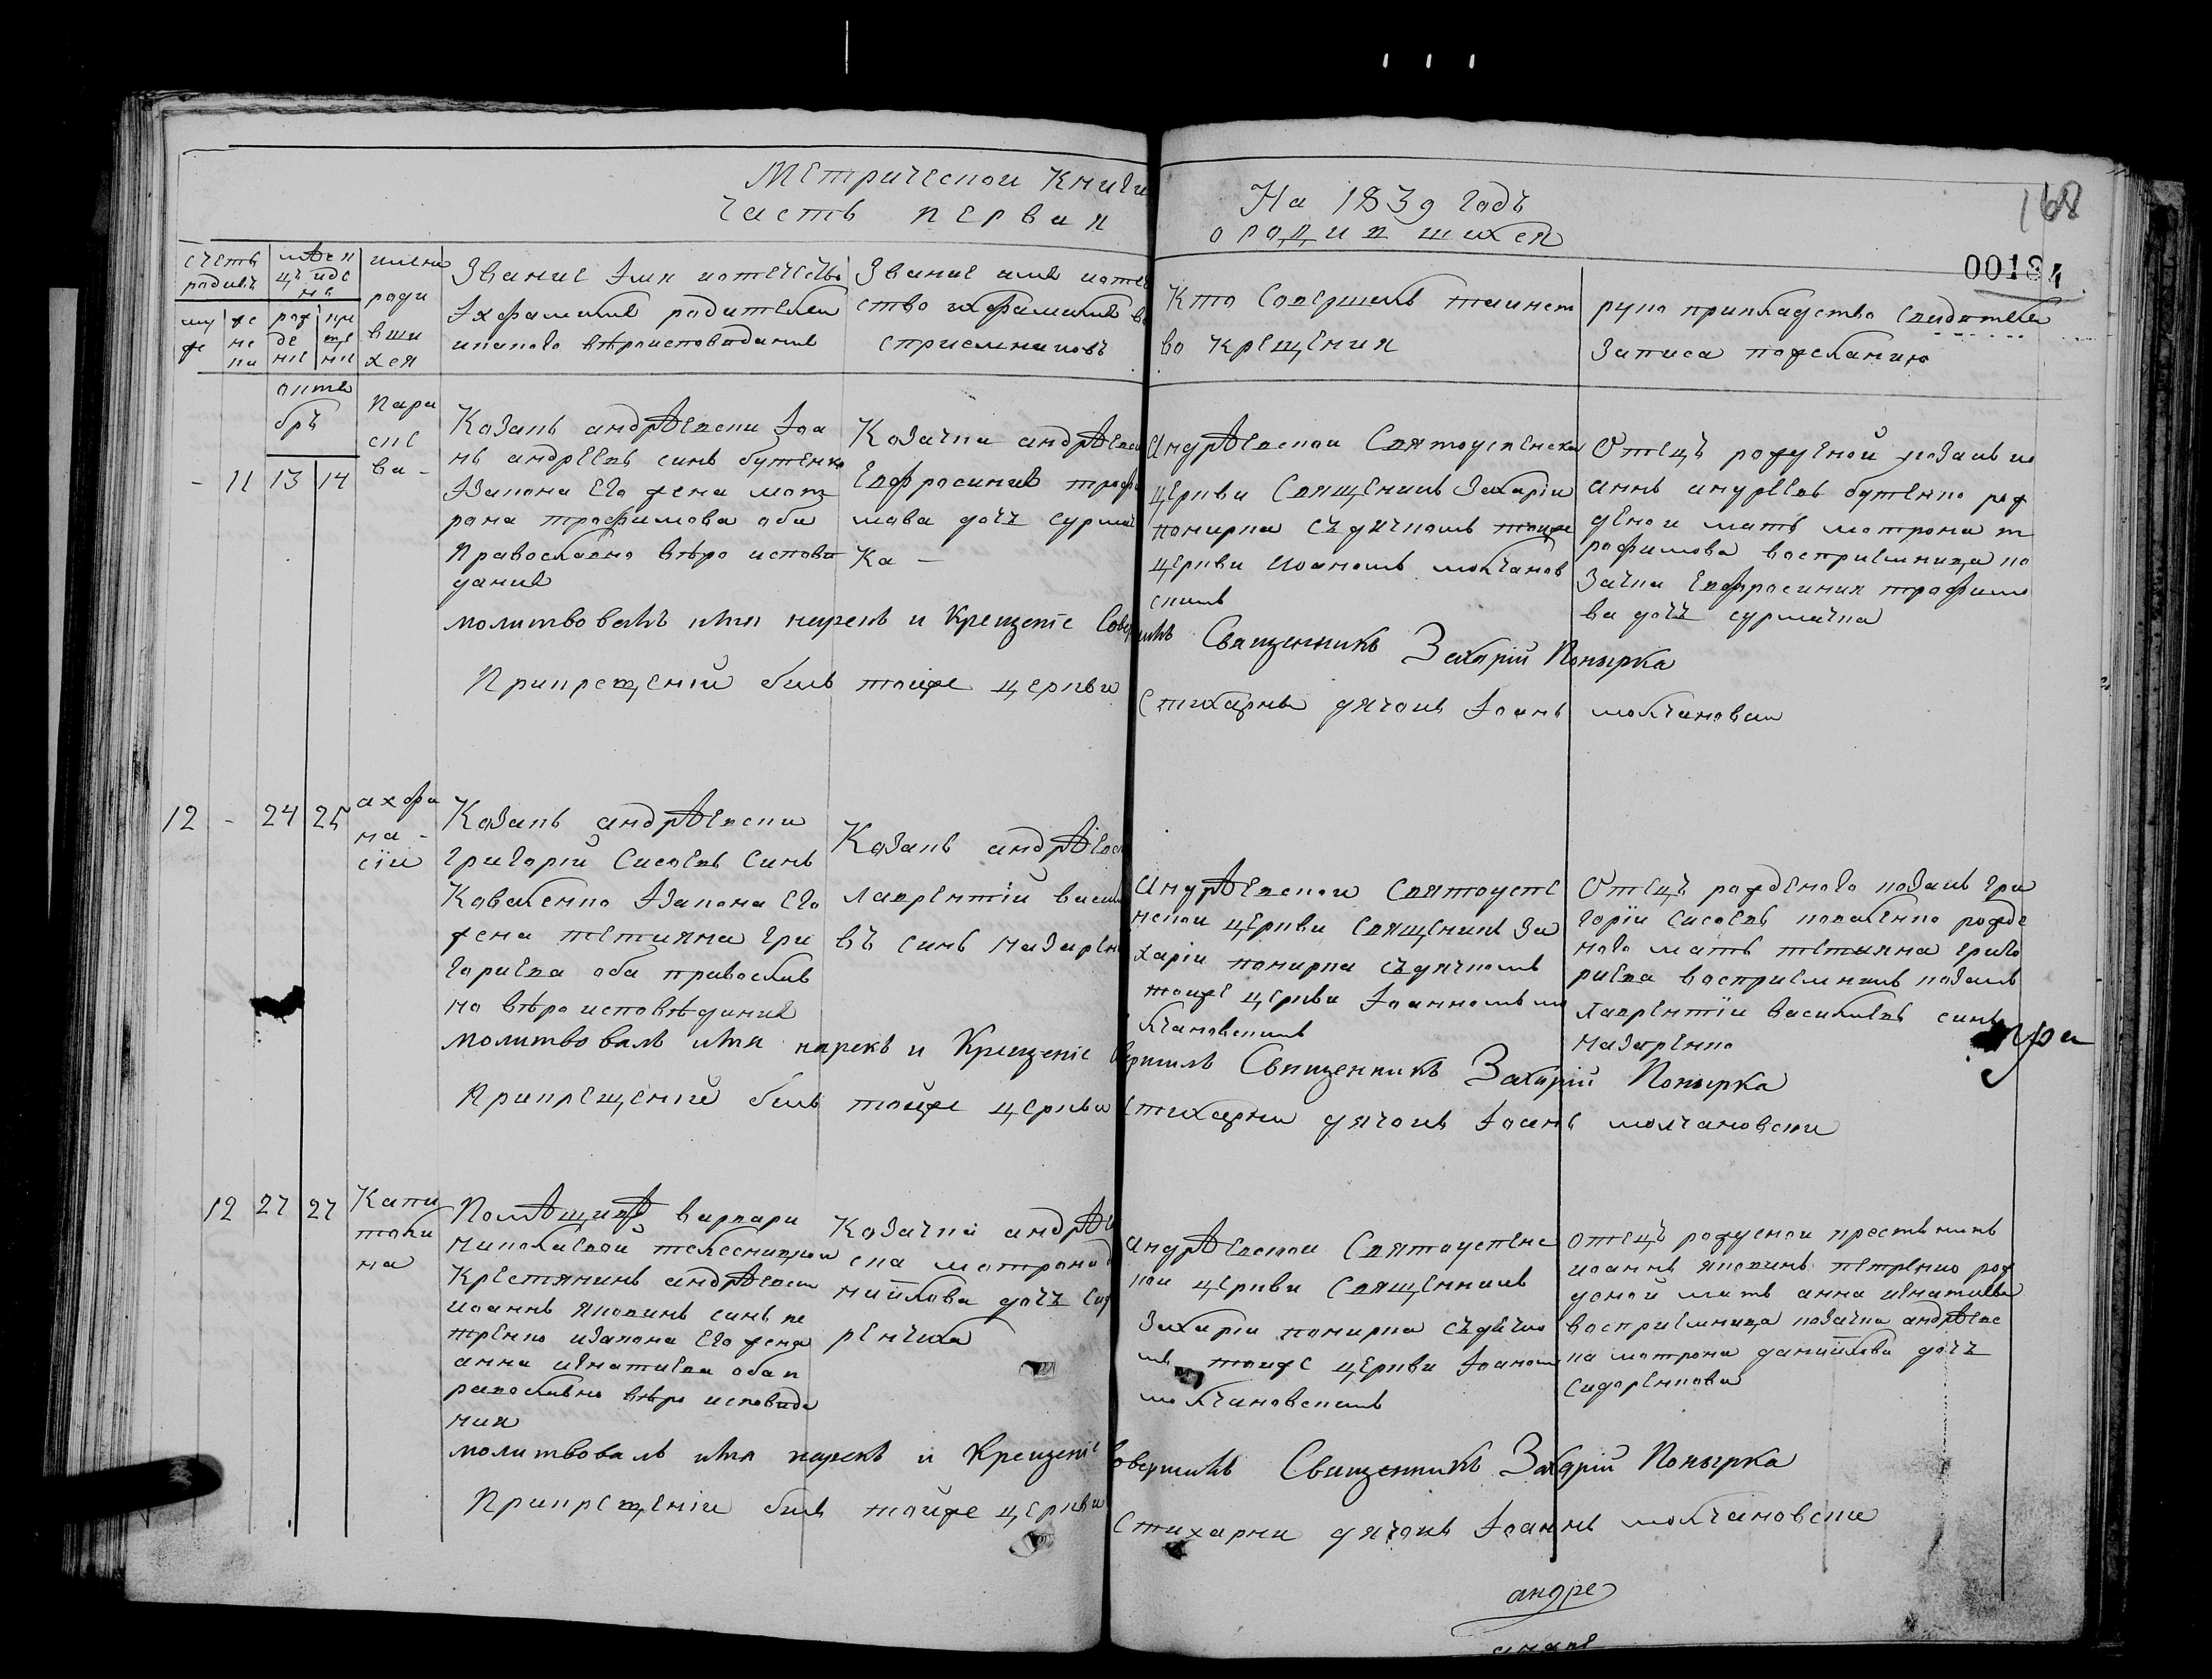 Метрической Книги
часть первая
На 1839 годъ
о родившихся
168
00184
счетъ родивъ
муже
женска
мѣсяцъ и день
рожденіе
крещеніе
имена
роди
вши
хся
Званіе Імя иотечество
Іхфамиліе родителей
икакого вѣроисповиданіе
Званіе имя иотече
ство ихфамиліе во
сприемниковъ
Кто Совершилъ таинст
во крещения
руко прикладство свидителей
Записа пожеланию
октя
бръ
- 11 13 14
Пара
ске
ва -
Козакъ андрѣевски Іоа
нъ андреевъ синъ бутенко
Ізакона Его жена мот
рона трофимова оба
Православно вѣро испови
даниe
Козачка андрѣевск
Евфросиниe трофи
мова дочъ сурмач
ка -
Андрѣевской Святоуспенской
церкви Священикъ Захарій
попирка съдячкомъ тойже
церкви иоаномъ молчанов
скимъ
Отецъ рожденой козакъ ио
аннъ андреевъ бутенко рож
деной мать мотрона т
рофимова восприемница ко
зачка Евфросиния трофимо
ва дочъ сурмачка
молитвовалъ имя нарекъ и Крещеніе Совершилъ Священникъ Захарій Попырка
Прикрещеніи билъ тойже церкви Стихарны дячокъ Іоанъ молчановски
12 - 24 25
ахфа
на -
сій
Козакъ андрѣевски
григорій Сисоевъ Синъ
Коваленко Ізакона Его
жена тетияна гри
гориева оба православ
но вѣро исповѣданиe
Козакъ андрѣевск
лаврентій васили
въ синъ назарен
Андрѣевской Святоуспе
нской церкви Священикъ За
харіи попирка съдячкомъ
тойже церкви Іоанномъ мо
лчановскимъ
Отецъ рожденого козакъ гри
горіи Сисоевъ коваленко рожде
ного мать тетияна григо
риева восприемникъ козакъ
лаврентіи василиевъ синъ
назаренко
молитвовалъ имя нарекъ и Крещеніе Совершилъ Священникъ Захарій Попырка
Прикрещеній билъ тойже церкви стихарни дячокъ Іоанъ молчановски
12 27 27
Капи
толи
на
Помѣщицѣ варвари
николаевой телесницкой
Крестянинъ андрѣевски
иоаннъ яковинъ синъ пе
тренко изакона Его жена
анна игнатиева оба п
равославно вѣро исповида
ния
Козачка андрѣв
ска мотрона д
анійлова дочъ Сидо
ренчиха
андрѣевской Святоуспенс
кой церкви Священникъ
Захаріи попирка съдячко
мъ тойже церкви Іоаномъ
молчановскимъ
отецъ рожденой крестянинъ
иоаннъ яковинъ петренко рож
деной мать анна игнатиева
восприемница козачка андрѣевс
ка мотрона данийлова дочъ
Сидоренкова
молитвовалъ имя нарекъ и Крещеніе Совершилъ Священникъ Захарій Попырка
Прикрещеніи билъ тойже церкви Стихарни дячокъ Іоаннъ молчановски
андре